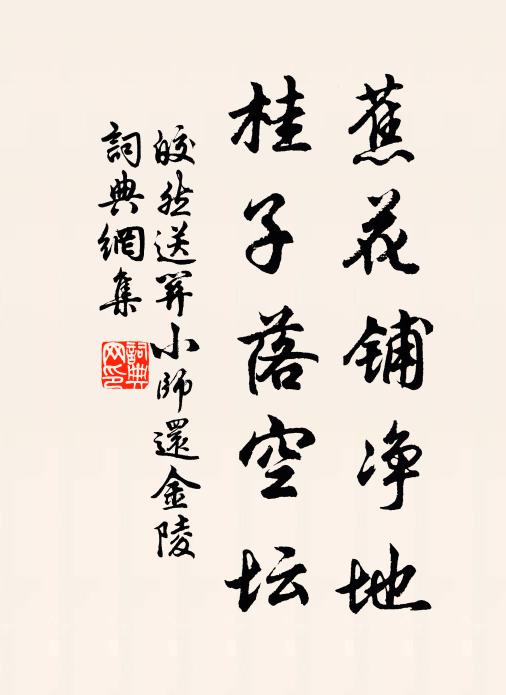 蕉花铺净地
桂子落空坛
皎然送羿小师還金陵
詞典網集
詞典网印